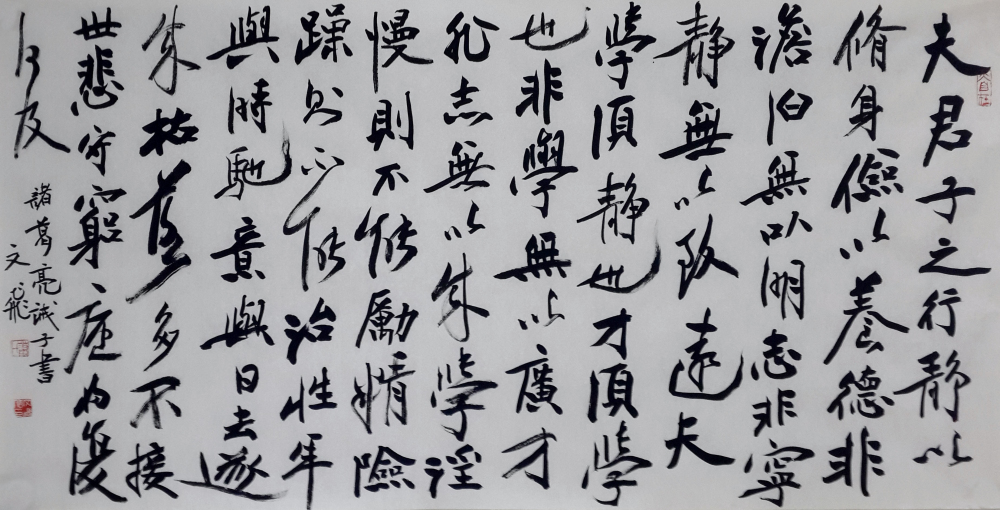 夫君子之行静以
脩身儉以養德非
澹泊無以明志非寧
静無以致遠夫
學須静也才須學
也非學無以廣才
非志無以成學淫
慢則不能勵精險
躁則不能治性年
與時馳意與日去遂
成枯落多不接
世悲守窮廬将復
何及
諸葛亮誡子書
文飛